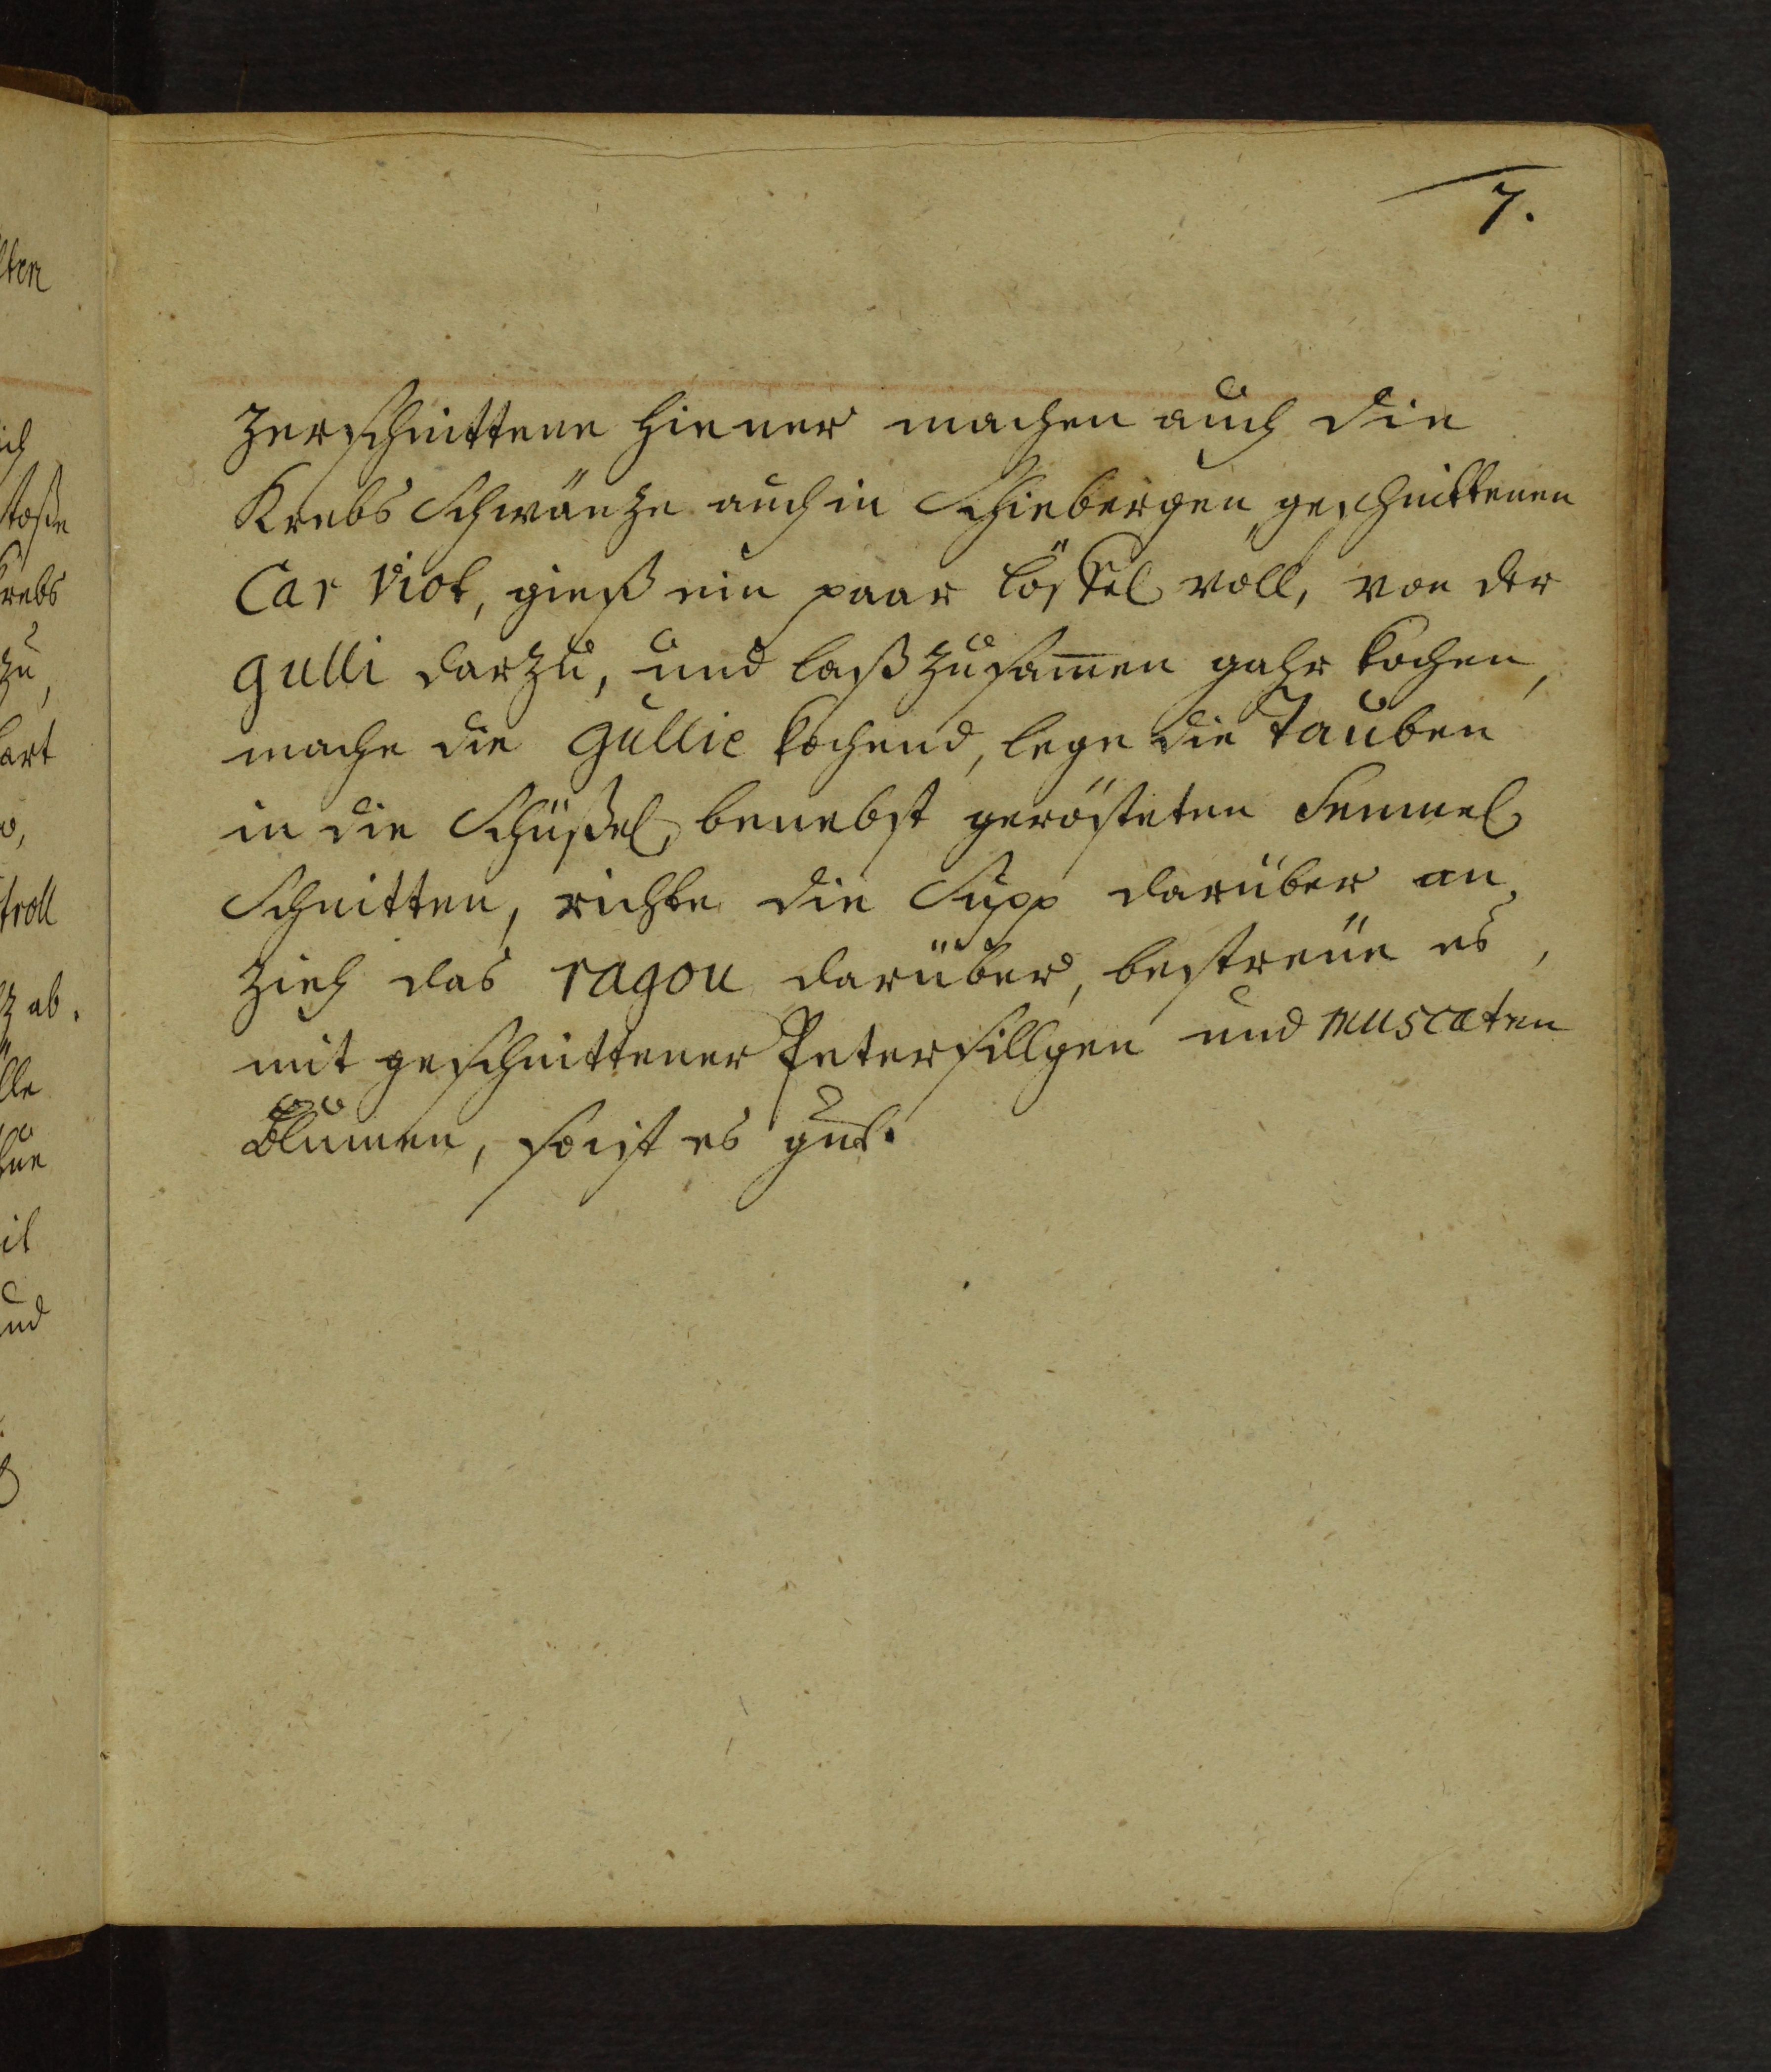 7.
zerschnittene Hiener machen auch die
Krebs Schwäntze auch in Schiebergen geschnittenen
Car Viol, gieß ein paar Löffel voll, von der
gulli darzu, und laß zusam̅en gahr kochen,
mache die gullie kochend, lege die Tauben
in die Schüßel, benebst gerösteten Semmel
Schnitten, richte die Supp darüber an,
zieh das ragou darüber, bestreue es,
mit geschnittener Petersillgen und muscaten
Blumen, so ist es gut.